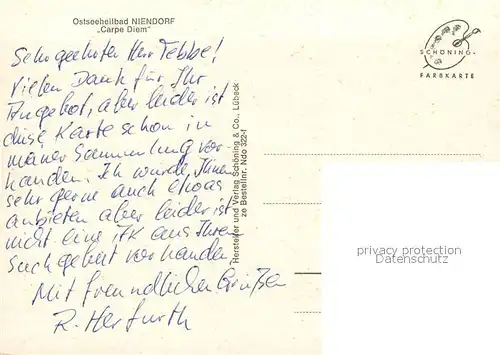 Ostseeheilbad NIENDORF
„Carpe Diem"
Sehr geehrter Herr Tebbe!
Vielen Dank für Ihr
Angebot, aber leider ist
diese Karte schon in
meiner Sammlung vor-
handen. Ich würde Ihnen
sehr gerne auch etwas
anbieten aber leider ist
nicht eine AK aus Ihrem
Suchgebiet vorhanden
Mit freundlichen Grüßen
R. Herfurth
Hersteller und Verlag Schöning & Co., Lübeck
ze Bestellnr. Ndo 322-1
SCHÖNING-
FARBKARTE
privacy protection
Datenschutz